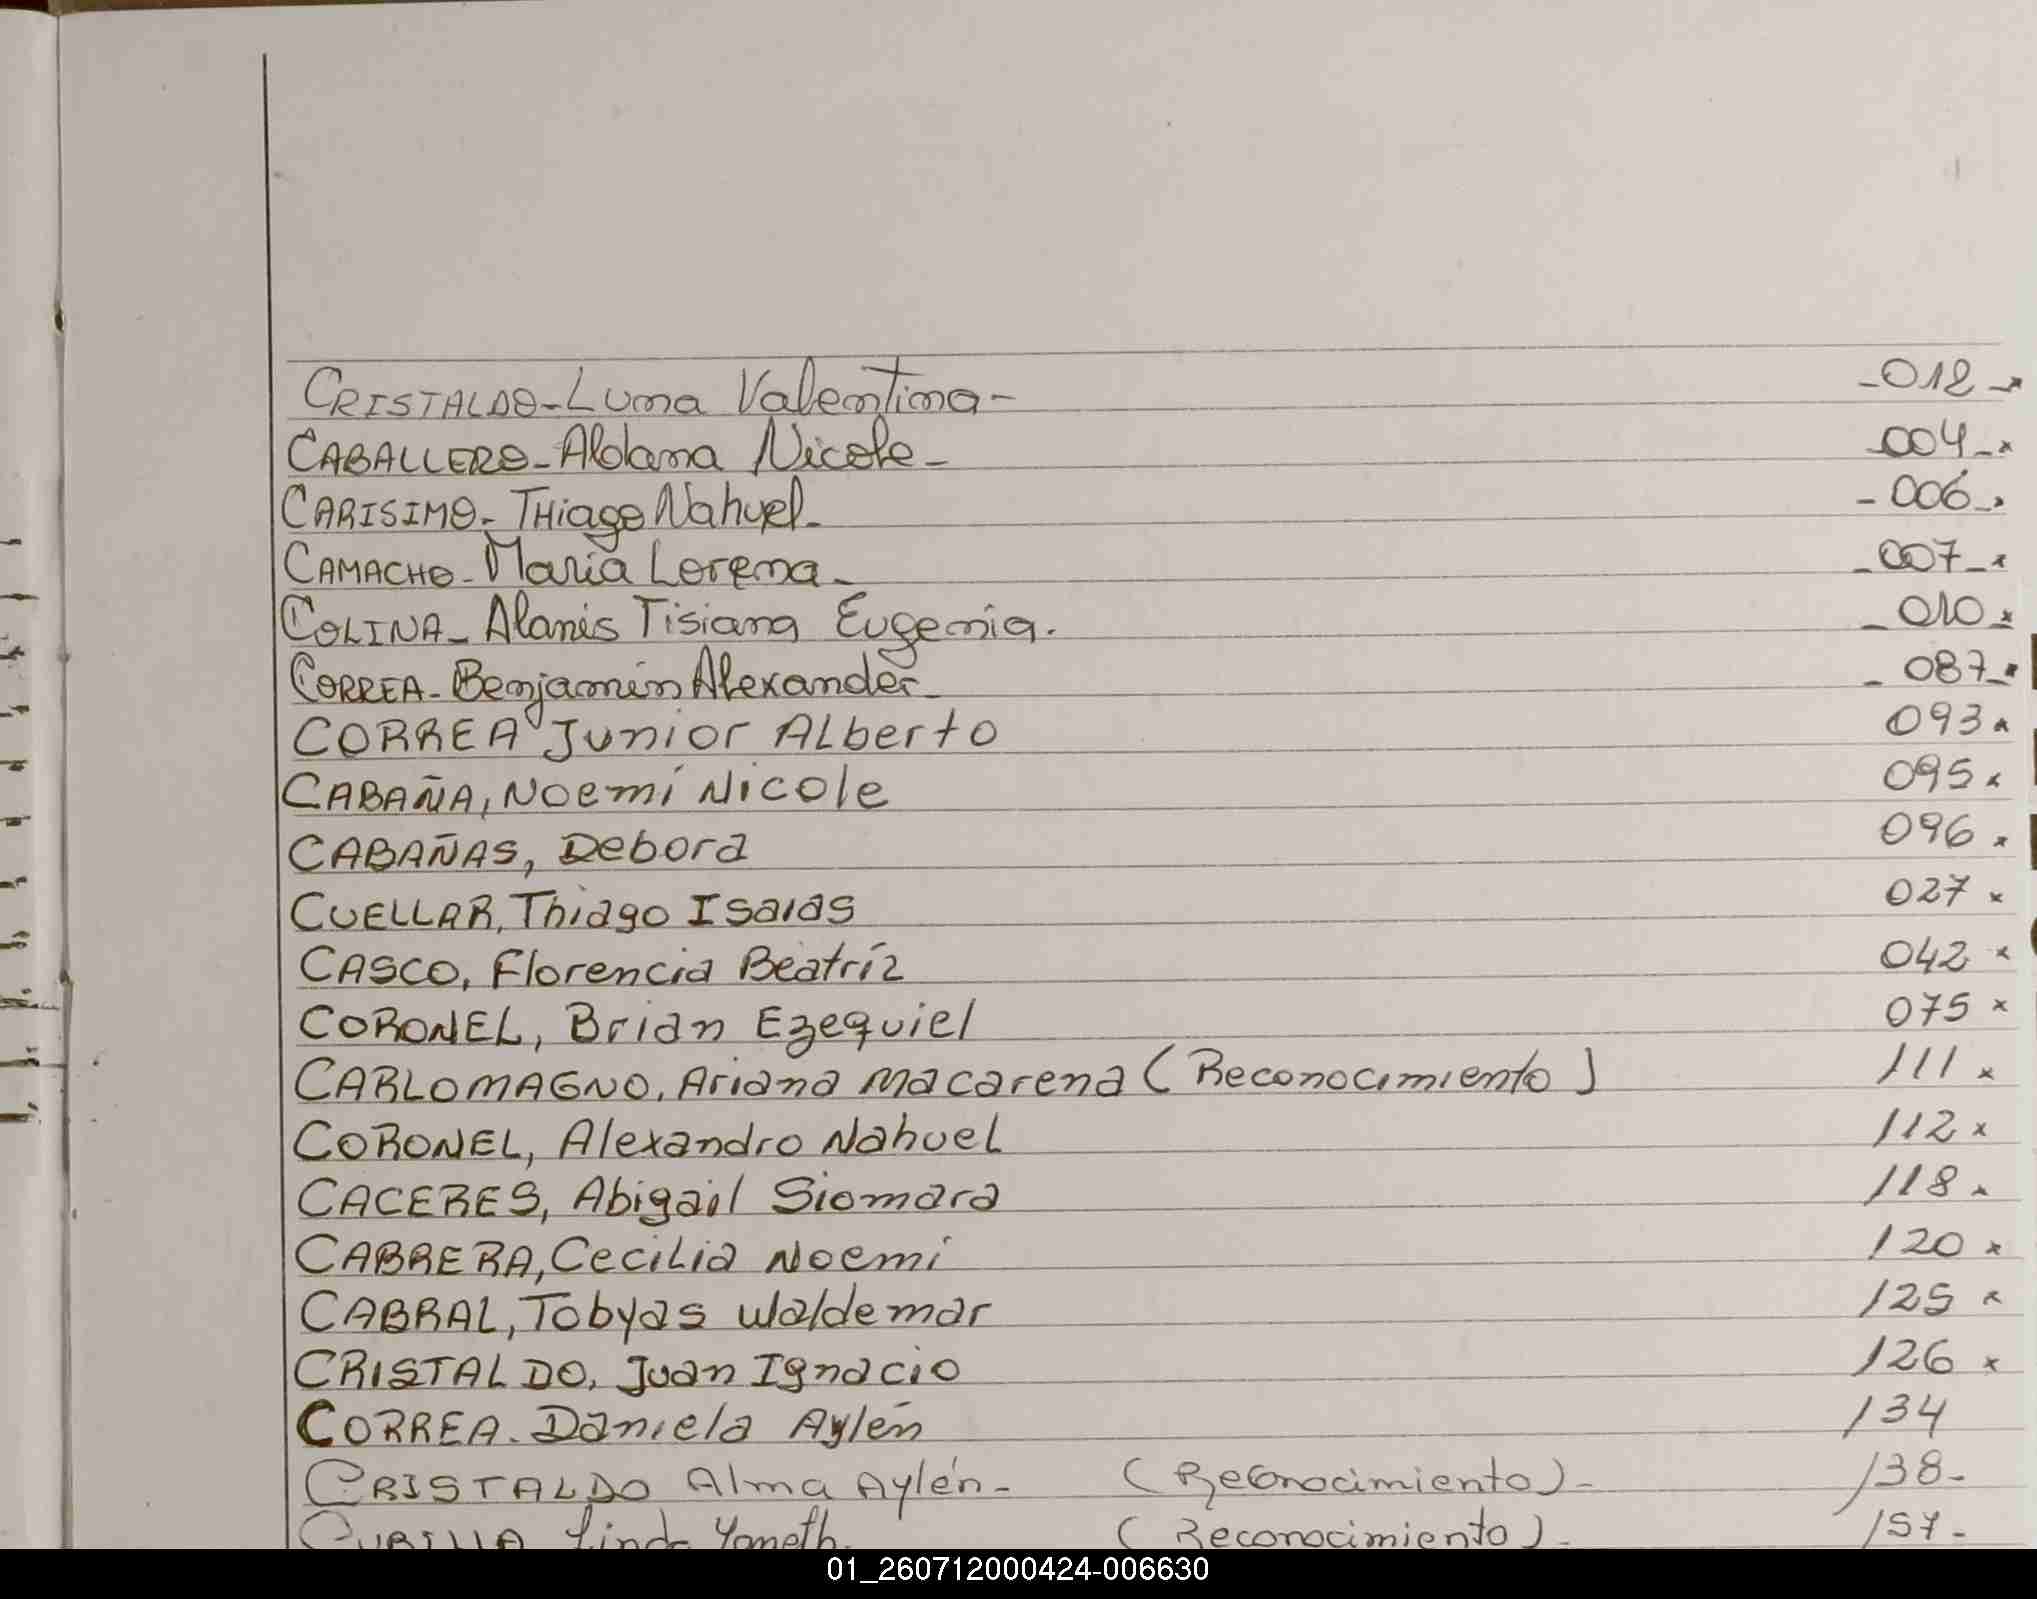 CRISTALDO-Luma Valentina- -012-
CABALLERO-Aldana Nicole- -004-x
CARISIMO-THiago Nahuel- -006-
CAMACHO-Maria Lorena- -007-x
COLINA-Alanis Tisiana Eugenia. -010-x
CORREA-Benjamin Alexander- -087-
CORREA Junior ALberto 093x
CABAÑA, NOemí Nicole 095x
CABAÑAS, Debora 096.
CUELLAR, Thiago Isaias 027x
CASCO, Florencia Beatríz 042x
CORONEL, Brian Ezequiel 075x
CARLOMAGNO, Ariana Macarena (Reconocimiento) 111x
CORONEL, Alexandro Nahuel 112x
CACERES, Abigail Siomara 118x
CABRERA, Cecilia Noemí 120x
CABRAL, Tobyas Waldemar 125x
CRISTALDO, Juan Ignacio 126x
CORREA. Daniela Aylén 134
CRISTALDO Alma Aylén- (Reconocimiento)- 138-
Linda Yameth. (Reconocimiento)- 157-
01_260712000424-006630